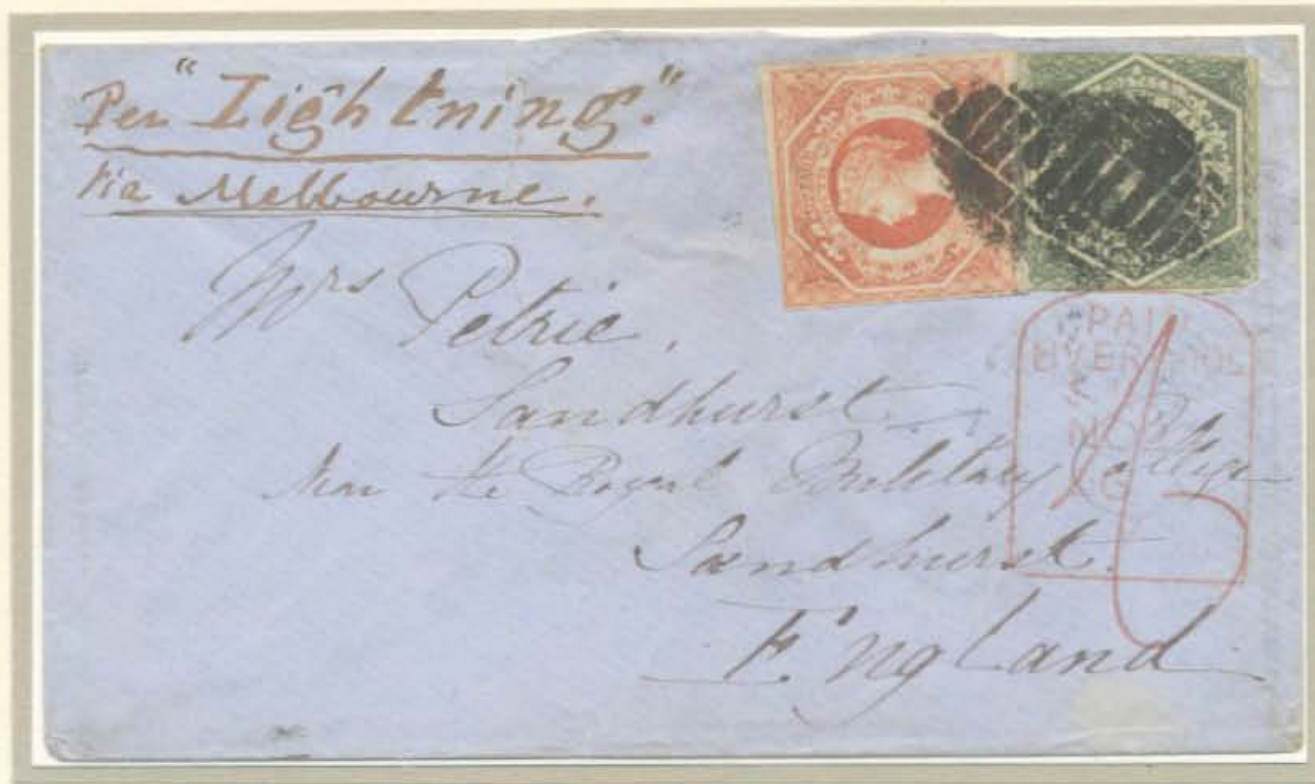 Per "Lightning."
via Melbourne.
Mrs Petrie,
Sandhurst
Near the Royal Military College
Sandhurst.
England
PAID
LIVERPOOL
NO